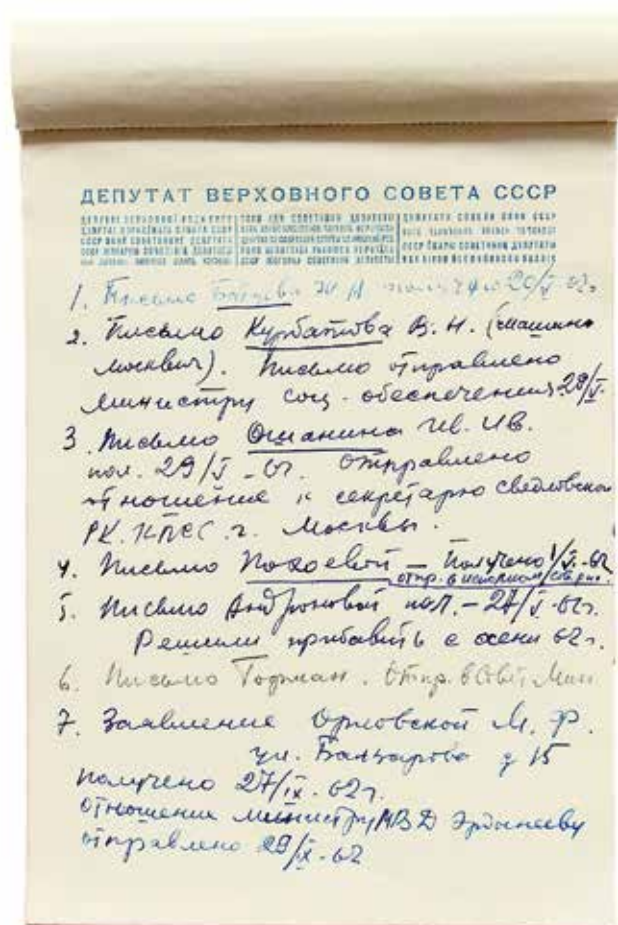 ДЕПУТАТ ВЕРХОВНОГО СОВЕТА СССР
1. Письмо Ю. А. получено 20/V-62г.
2. Письмо Курбатова В. Н. (машина
москвич). Письмо отправлено
министру соц. обеспечения 29/V.
3. Письмо Ошанина Ив. Ив.
пол. 29/V-62. Отправлено
отношение к секретарю Свердловском
РК. КПСС. г. Москвы.
4. Письмо – Получено 1/VI-62
отпр. в
5. Письмо Андроновой пол. – 27/V-62г.
Решили прибавить с осени 62г.
6. Письмо Гофман. Отпр. в Совет Мин
7. Заявление Орловской М. Ф.
ул. Банзарова д 15
получено 27/IX-62г.
отношение министру МВД Эрдынееву
отправлено 29/IX-62